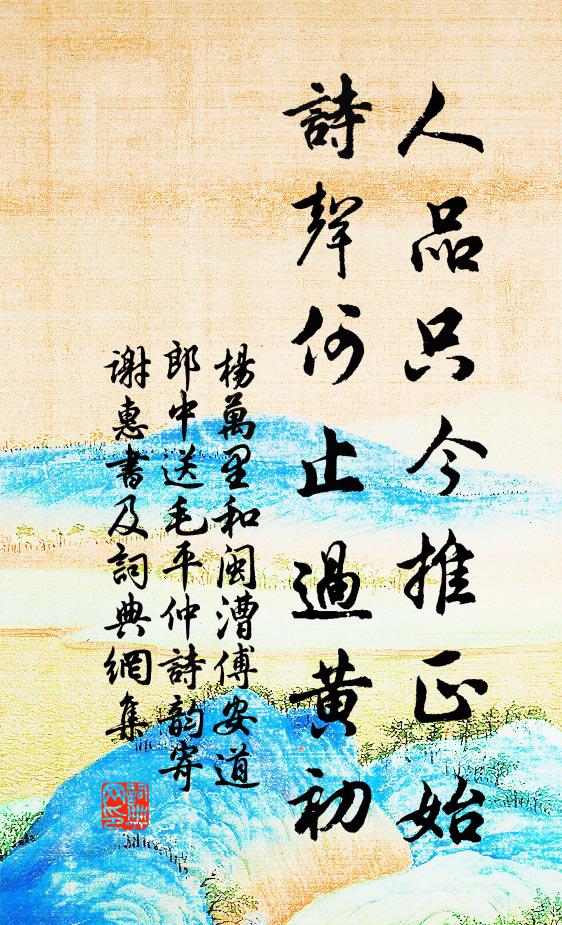 人品只今推正始
詩聲何止過黃初
楊萬里和閩漕傅安道
郎中送毛平仲詩韵寄
謝惠書及詞典網集